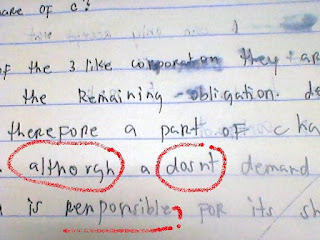 are of c?
of the 3 like corporation they are
the Remaining obligation. de
therefore a part of c ha
althorgh a dosnt demand
is renponsible? FOR its sh